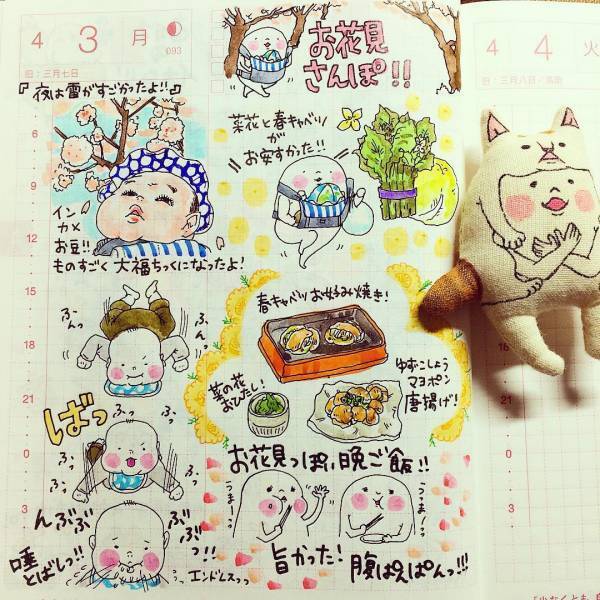 4 3 月
093
旧:三月七日
『夜は雷がすごかったよ!!』
お花見
さんぽ!!
4 4 火
旧:三月八日
6
9
12
15
18
21
0
3
インカメ
お豆!!
ものすごく大福ちっくになったよ!
菜花と春キャベツ
が
お安すかった!!
ふんっ
ふん。
ばっ
ふっ
ふっ
ふっ
ふっ
んぶぶ
ぶっ!!
唾
とばしっ!!
エンドレスっっ
春キャベツお好み焼き!
菜の花
おひたし!
ゆずこしょう
マヨポン
唐揚げ!
お花見っぽい晩ご飯!!
うまーっ
うまーっ
旨かった!
腹ぱんぱんっ!!!
3